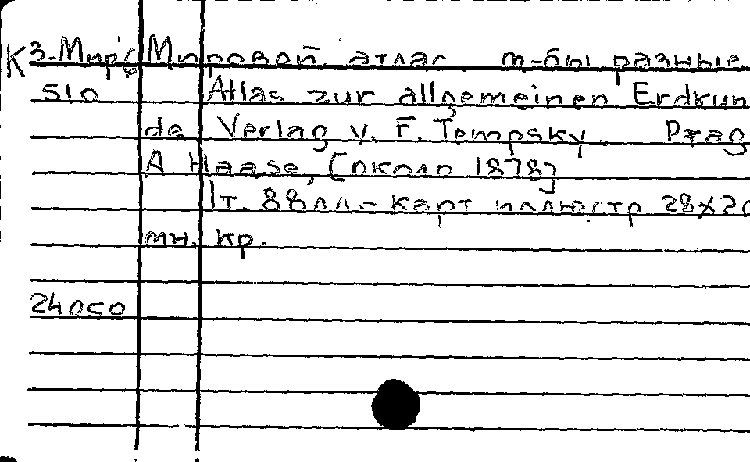 К 3.Мир Мировой атлас м-бы разные
510 Atlas zur allgemeinen Erdkun
de Verlag v. F. Tempsky. Prag
A Haase, [около 1878]
1т. 88лл-карт иллюстр 28x
мн. кр.
24050